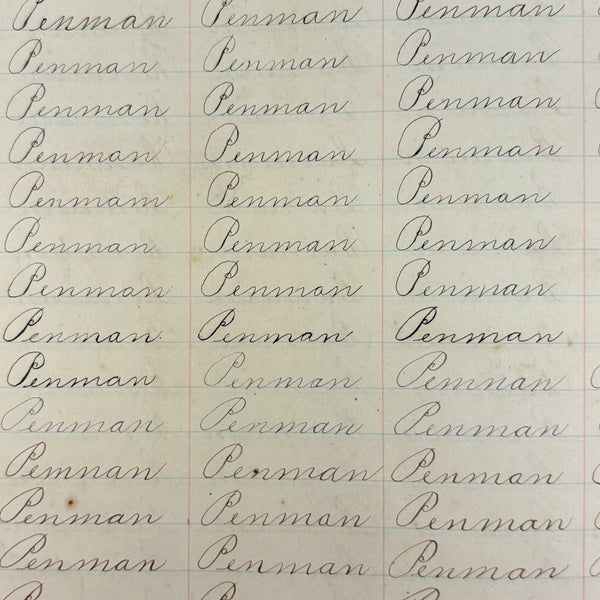 Penman Penman Penman
Penman Penman Penman
Penman Penman Penman
Penman Penman Penman
Penmam Penman Penman
Penman Penman Penman
Penman Penman Penman
Penman Penman Penman
Penman Penman Pemnan
Penman Penman Penman
Pemnan Penman Penman
Penman Penman Penman
Penman Penman Penman